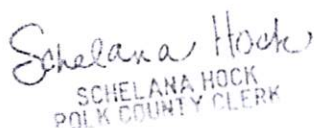 Schelana Hock
SCHELANA HOCK
POLK COUNTY CLERK